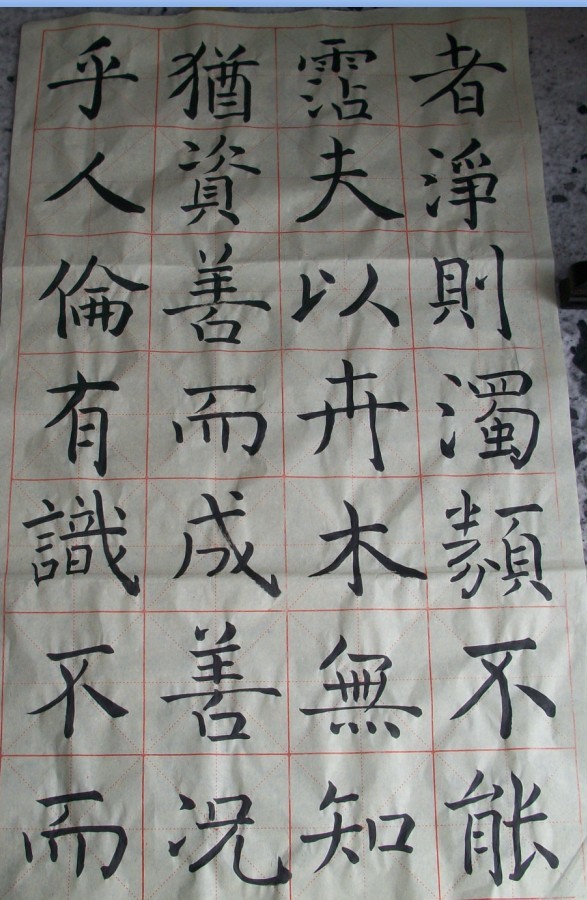 者淨則濁類不能
霑夫以卉木無知
猶資善而成善况
乎人倫有識不而